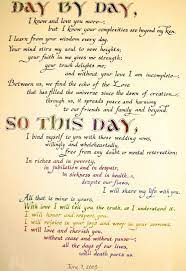 DAY BY DAY,
I know and love you more—
but I know your complexities are beyond my ken.
I learn from your wisdom every day.
Your mind stirs my soul to new heights;
your faith in me gives me strength;
your touch delights me;
and without your love I am incomplete—
Between us, we find the echo of the Love
that has filled the universe since the dawn of creation;
through us, it spreads peace and harmony
to our friends and family and beyond.
SO THIS DAY,
I bind myself to you with these wedding vows,
willingly and wholeheartedly,
free from any doubt or mental reservation:
In riches and in poverty,
in jubilation and in despair,
in sickness and in health,
despite our flaws,
I will share my life with you.
All that is mine is yours.
With love I will tell you the truth, I understand it.
I will honor and respect you.
I will rejoice in your love and weep in your sorrows.
I will love and cherish you,
without cease and without pause—
all the days of our lives,
until death parts us.
June 7, 2003